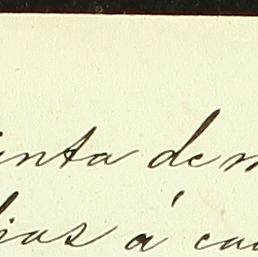 inta de m
ias á ca